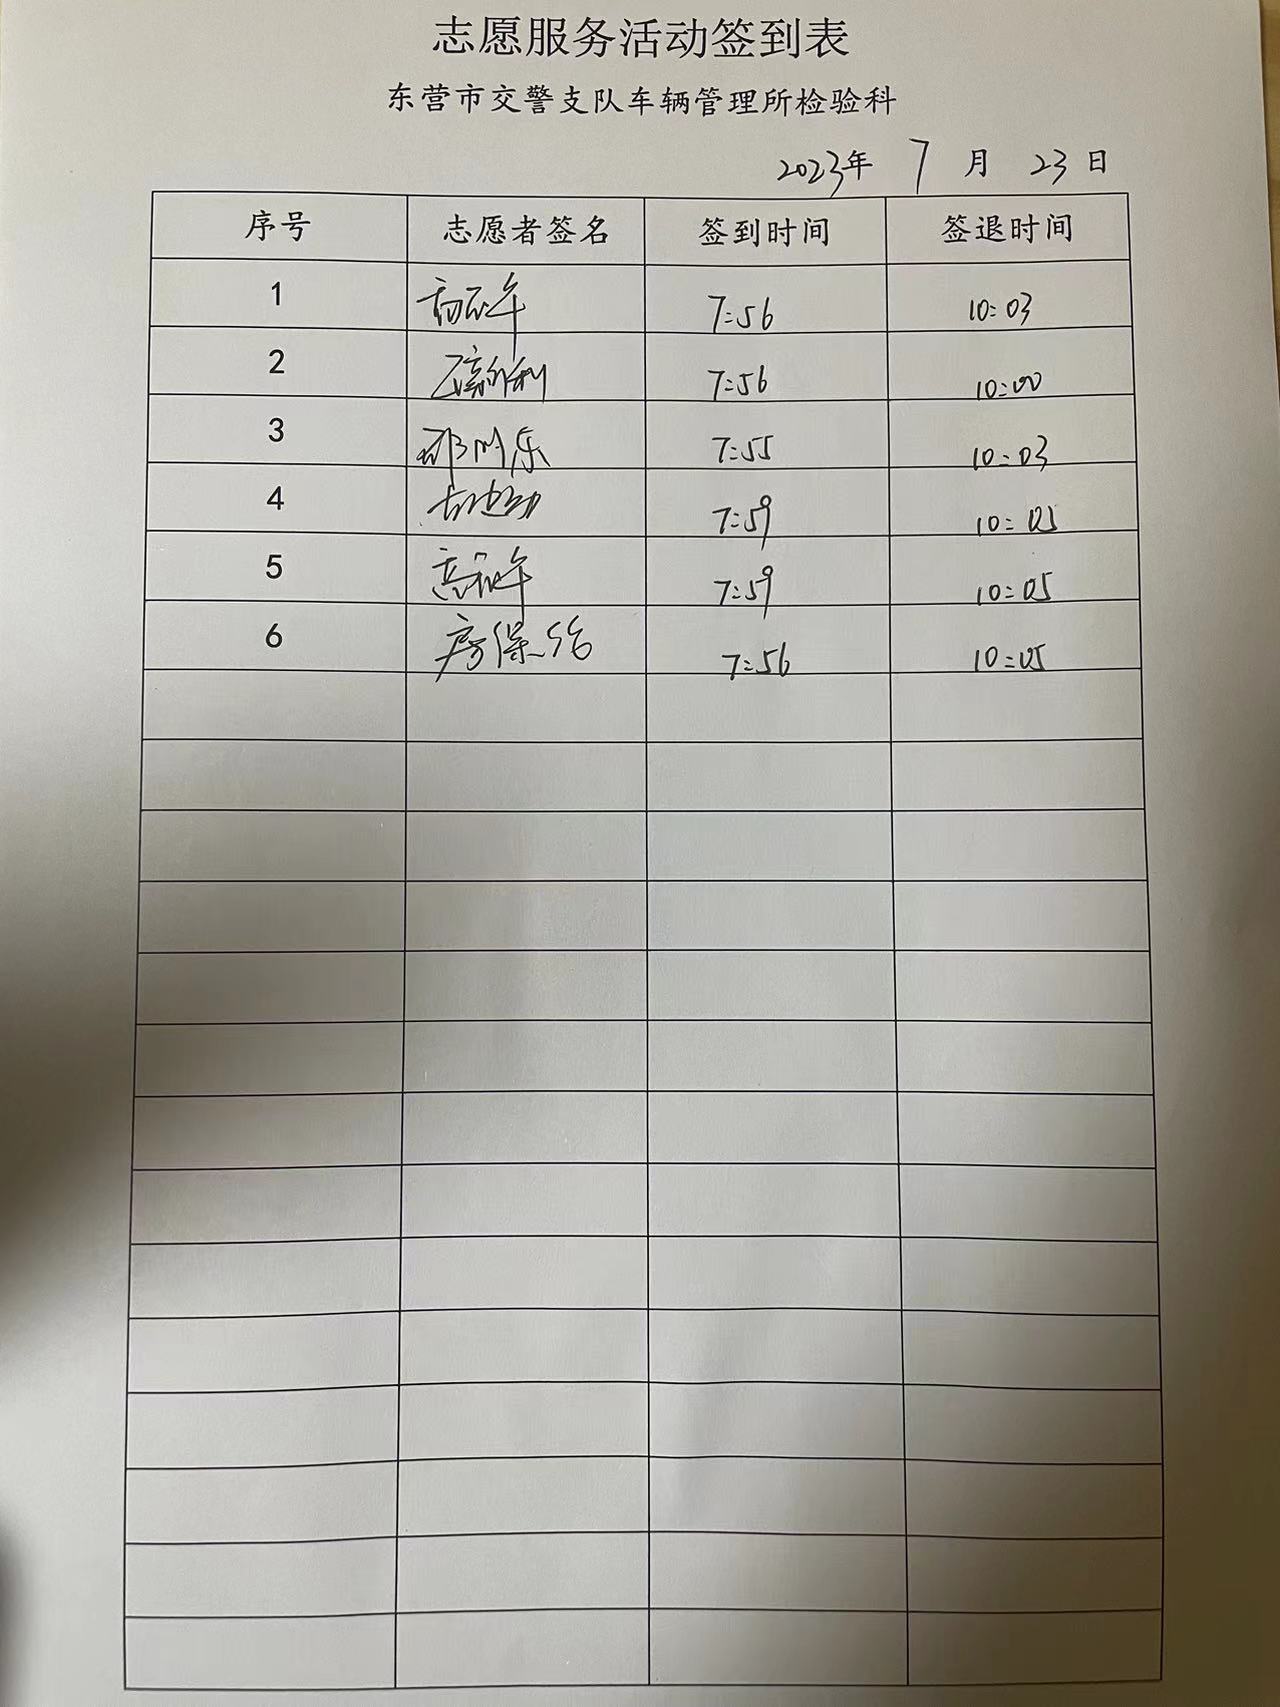 志愿服务活动签到表
东营市交警支队车辆管理所检验科
2023年 7 月 23 日
序号 志愿者签名 签到时间 签退时间
1 7:56 10:03
2 7:56 10:00
3 7:55 10:03
4 7:59 10:05
5 7:59 10:05
6 房保 7:56 10:05